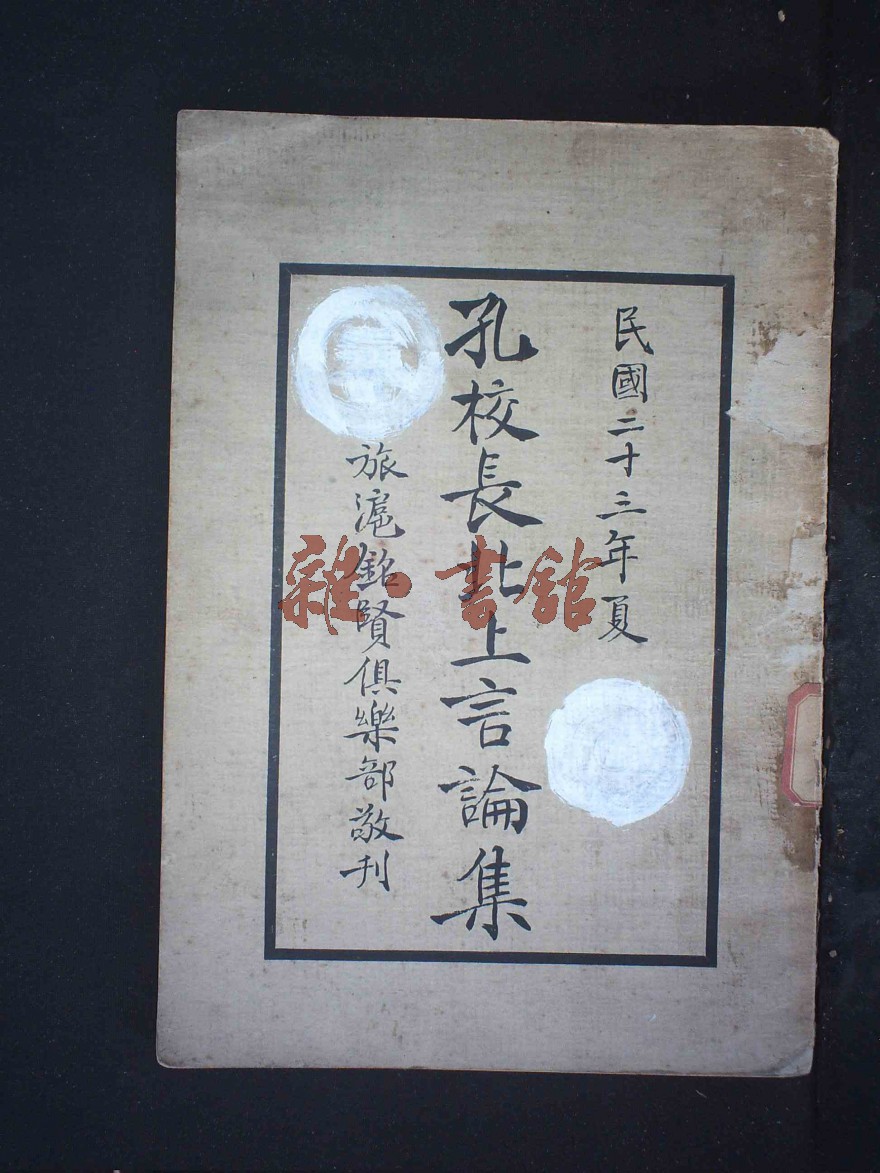 民國二十三年夏
孔校長北上言論集
旅滬銘賢俱樂部敬刊
雜·書館